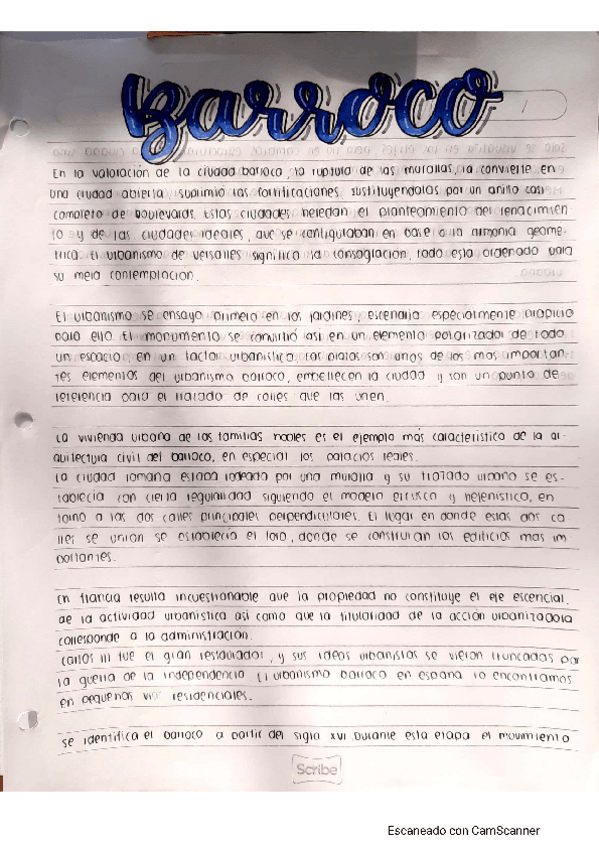 Barroco
En la valoración de la ciudad barroca, la ruptura de las murallas, la convierte en
una ciudad abierta, suprimio las fortificaciones, sustituyendolas por un anillo casi
completo de boulevards. Estas ciudades heredan el planteamiento del renacimien
to y de las ciudades ideales, que se configuraban en base a la armonia geome
trica. El urbanismo de versalles significa la consagracion, todo esta ordenado para
su mera contemplacion.
El urbanismo se ensayo primero en los jardines, escenario especialmente propicio
para ello. El monumento se convirtió asi en un elemento polarizador de todo
un espacio, en un factor urbanistico. Las plazas son unos de los mas importan
tes elementos del urbanismo barroco, embellecen la ciudad y son un punto de
referencia para el trazado de calles que las unen.
La vivienda urbana de las familias nobles es el ejemplo más caracteristico de la ar-
quitectura civil del barroco, en especial los palacios reales.
La ciudad romana estaba rodeada por una muralla y su trazado urbano se es-
tablecia con cierta regularidad siguiendo el modelo etrusco y helenistico, en
torno a las dos calles principales perpendiculares. El lugar en donde estas dos ca
lles se unian se establecia el foro, donde se construian los edificios mas im
portantes.
En francia resulta incuestionable que la propiedad no constituye el eje escencial
de la actividad urbanistica asi como que la titularidad de la acción urbanizadora
corresponde a la administracion.
Carlos III fue el gran restaurador, y sus ideas urbanistas se vieron truncadas por
la guerra de la independencia. El urbanismo barroco en españa lo encontramos
en pequeñas residenciales.
se identifica el barroco a partir del siglo XVI. Durante esta etapa el movimiento
Scribe
Escaneado con CamScanner